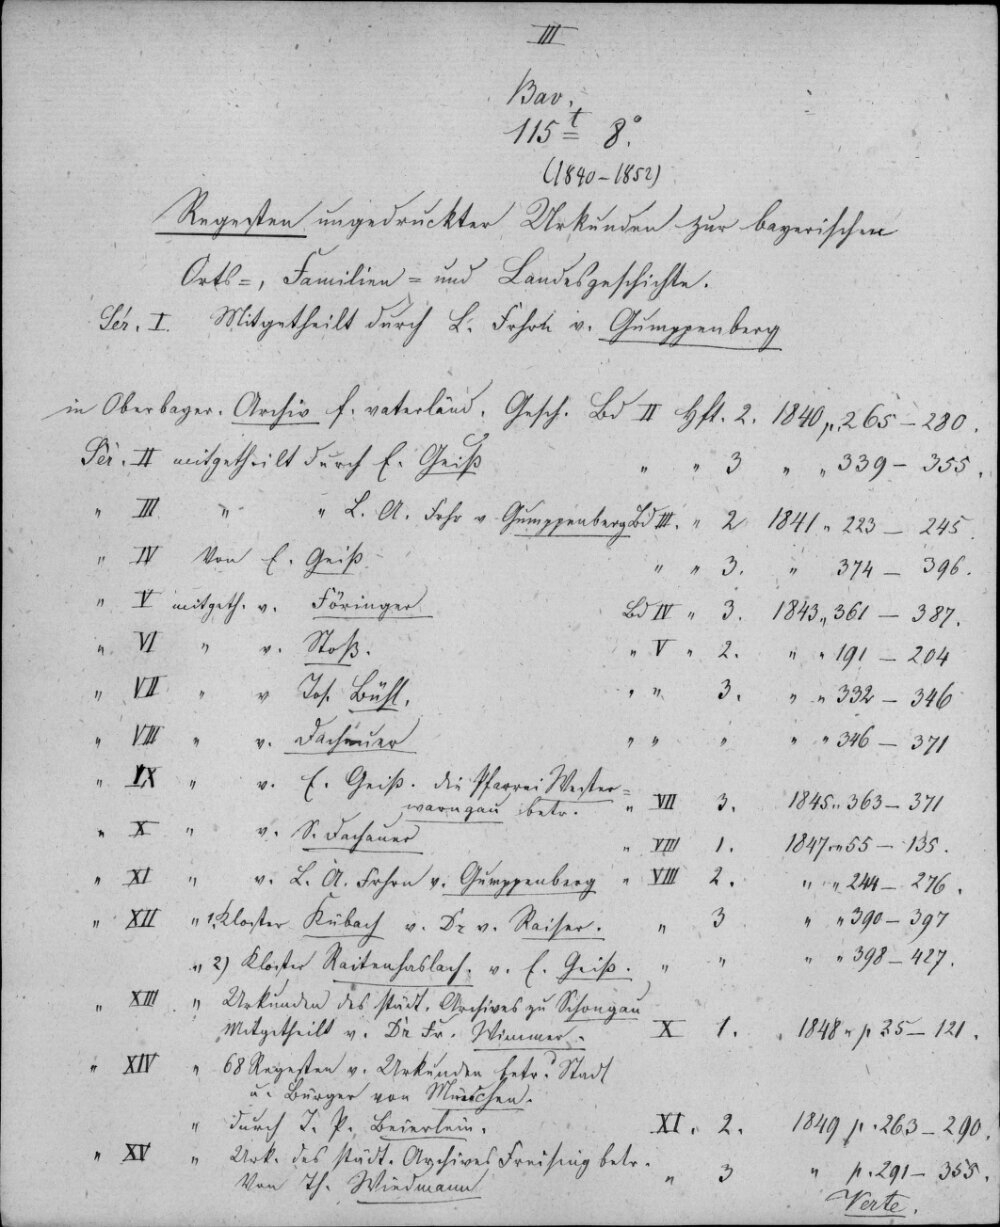 III
Bav.
115 t 8°.
(1840-1852)
Regesten ungedruckter Urkunden zur bayerischen
Orts=, Familien= und Landesgeschichte.
Ser. I. Mitgetheilt durch L. Frhrn v. Gumppenberg
in Oberbayer. Archiv f. vaterländ. Gesch. Bd II Hft. 2. 1840 p. 265-280.
Ser. II mitgetheilt durch E. Geiß " " 3 " " 339-355.
" III " " L. A. Frhr v Gumppenberg Bd III. " 2 1841 " 223-245.
" IV Von E. Geiß " " 3. " 374-396.
" V mitgeth. v. Föringer Bd IV " 3. 1843 " 361-387.
" VI " v. Stoß. " V " 2. " " 191-204
" VII " v Jos. Bühl. " " 3. " " 332-346
" VIII " v. Dachauer " " " " " 346-371
" IX " v. E. Geiß. die Pfarrei Wester=
warngau betr. " VII 3. 1845 " 363-371
" X " v. S. Dachauer " VIII 1. 1847 " 55-135.
" XI " v. L. A. Frhrn v. Gumppenberg " VIII 2. " " 244-276.
" XII " 1. Kloster Kübach v. Dr v. Raiser. " 3 " " 390-397
" 2) Kloster Raitenhaslach. v. E. Geiß. " " " " 398-427.
" XIII " Urkunden des städt. Archives zu Schongau
Mitgetheilt v. Dr Fr. Wimmer. X 1. " 1848 " p 35-121.
" XIV " 68 Regesten v. Urkunden betr. d Stadt
u. Bürger von München.
" durch J. P. Beierlein. XI. 2. 1849 p. 263-290.
" XV " Urk. des städt. Archives Freising betr.
Von Th. Wiedmann " 3 " p. 291-355.
Verte.